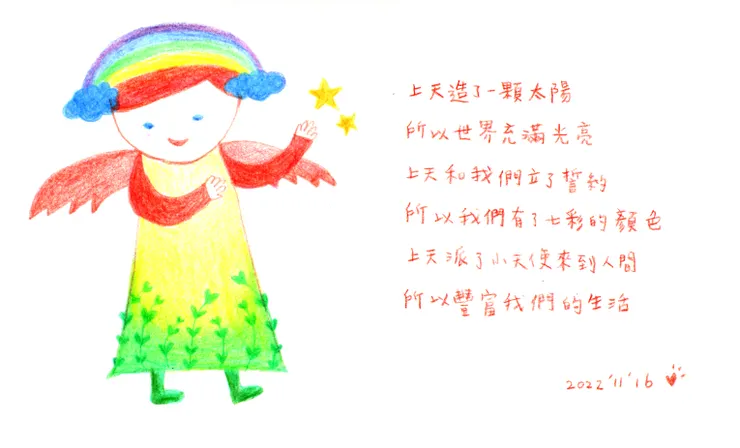 上天造了一顆太陽
所以世界充滿光亮
上天和我們立了誓約
所以我們有了七彩的顏色
上天派了小天使來到人間
所以豐富我們的生活
2022'11'16